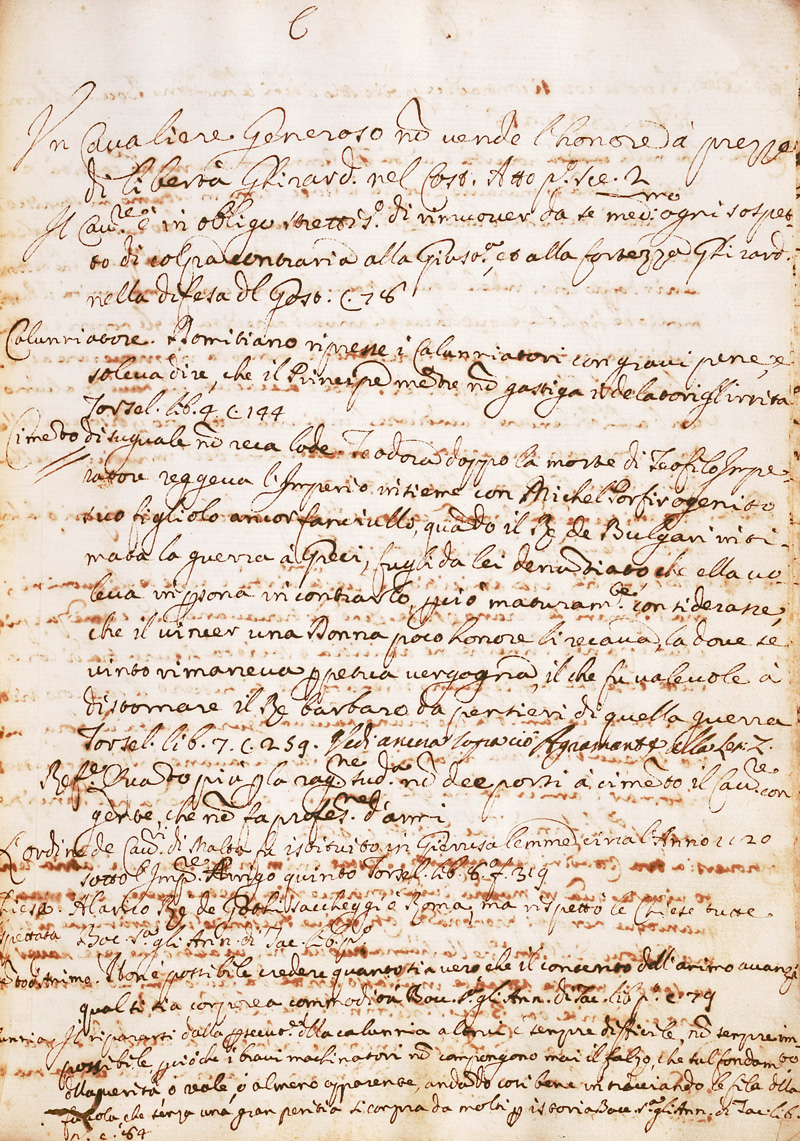 C
Un Cavaliere Generoso nō vende l'honore à prezzo
di libertà Ghirard. nel Cost. Atto p.º sce. 2
Il Cau.re è in obligo strettiss.º di rimuover da se med.mo ogni sospet-
to di colpa contraria alla Giust.a, et alla fortezza Ghirard.
nella difesa dl Cost: c. 78
Calunniatore. Domitiano ripresse i Calunniatori con gravi pene, e
soleva dire, che il Principe mētre nō gastiga i delatori gli irrita
Torsel. lib. 4 c. 144
Cimēto disuguale nō reca lode. Teodora doppo la morte di Teofilo Impe-
ratore reggeva l'Imperio insieme con Michel Porfirogenito
suo figliolo ancor fanciullo, quādo il Re de Bulgari inti-
mata la guerra à Greci, fugli da lei denūtiato che ella vo-
leva in ꝑsona incontrarlo, ꝑciò maturam.te considerasse,
che il vincer una Donna poco honore li recava, la dove se
vinto rimaneva ꝑpetua vergogna, il che fu valevole à
distornare il Re barbaro da pensieri di quella guerra
Torsel. lib. 7. c. 259. Vedi ancora sopra ciò Agramante ella Let. Z.
Quāto più ꝑ la rag.ne sud.a nō dee porsi à cimēto il Cau.re con
gente, che nō fa profess.ne d'armi
L'ordine de Cau.ri di Malta fu istituito in Gierusalemme circa l'Anno 1120
sotto l'Imp.re Arrigo quinto Torsel. lib. 8. f. 319
Chiese Alarico Re de Gotti saccheggiò Roma, ma rispettò le Chiese tutte
spettata Boc. s.a gli Ann. di Tac. lib. p.º
tod' Anime. Non è possibile credere quanto sia vero che il contento dell'animo avanzi
qual si sia corporea commodità Boc. s.a gli Ann. di Tac. lib. p.º c. 79
unnia. Il ripararsi dalla ꝑsecut.e dlla calunnia altrui, è sempre difficile, nō sempre im-
possibile, ꝑciò che i bravi machinatori nō compongono mai il falzo, che sul fondam.to
dlla verità, o reale, o almeno apparente, andādo così bene intrecciando le fila dlla
favola, che senza una gran peritia si corpra da molti ꝑ istoria Boc. s.a gli Ann. di Tac. lib.
p.º c. 84